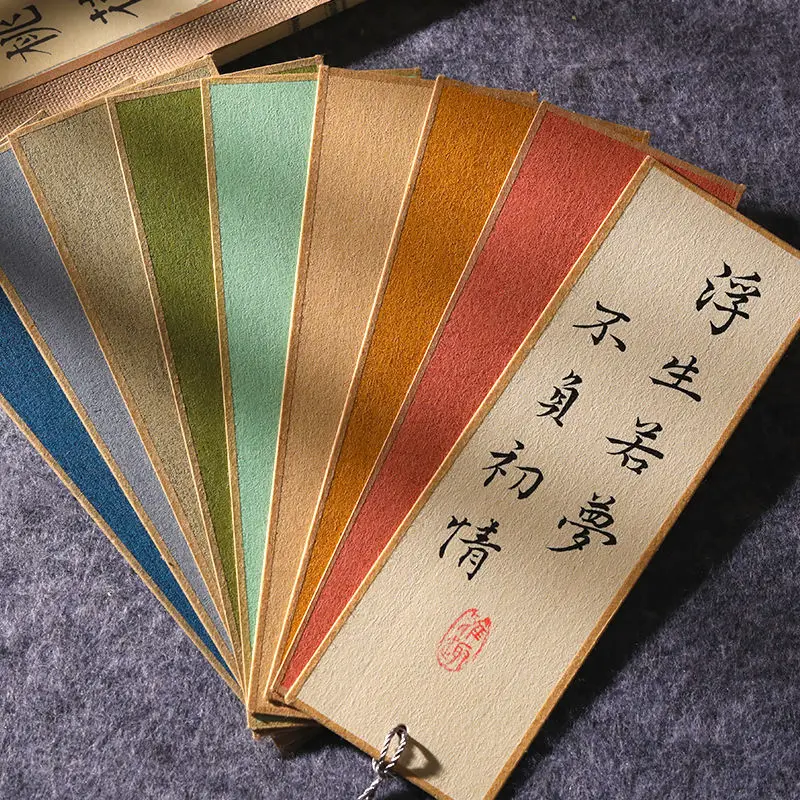 浮生若夢
不負初情
桃